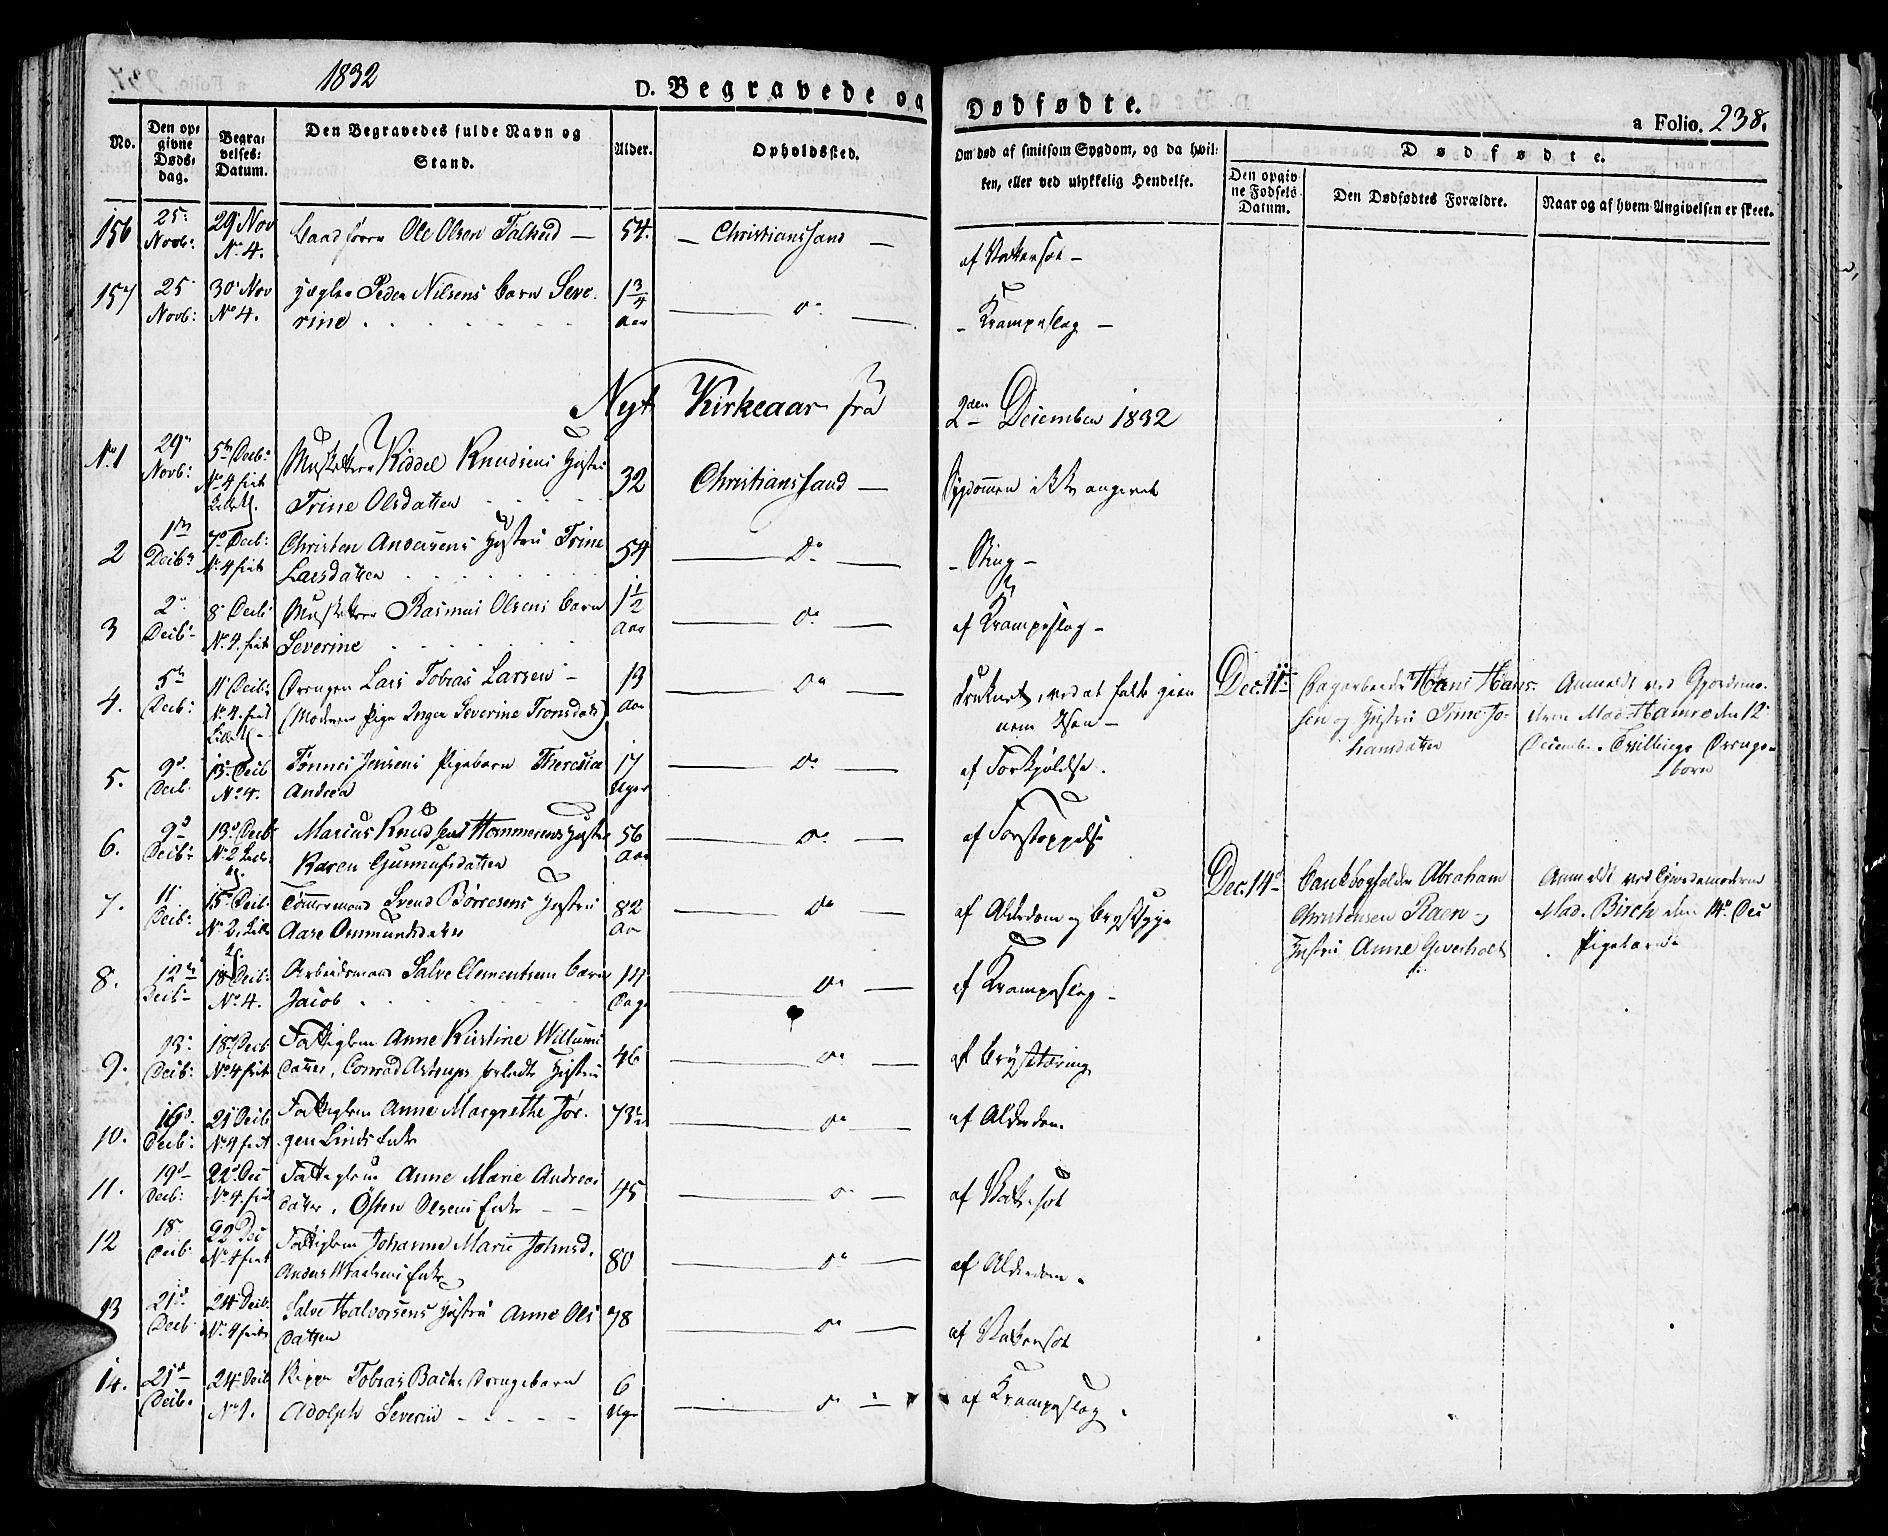 1832
D. Begravede og Dødfødte.
a Folio. 238.
No.
Den opgivne Dødsdag.
Begravelses-Datum.
Den Begravedes fulde Navn og Stand.
Alder.
Opholdssted.
Om død af smitsom Sygdom, og da hvilken, eller ved ulykkelig Hendelse.
Dødfødte.
Den opgivne Fødsels Datum.
Den Dødfødtes Forældre.
Naar og af hvem Angivelsen er skeet.
156 25 Novb: 29 Nov No 4. Ole Olsen 54. Christianssand
157 25 Novb: 30 Nov No 4. Peder Nilsens barn Severine 1 3/4 Aar do Krampeslag
Nyt Kirkeaar fra 2den December 1832
No 1 29 Novb: 5 Decb: No 4 Kiddel Knudsens Hustru
Trine Olsdatter 32 Christianssand Sygdommen ikke angivet
2 1 Decb: 7 Decb: No 4 frit Christen Andersens Hustru Trine
Larsdatter 54 do Sting
3 2 Decb: 8 Decb: No 4. frit Rasmus Olsens barn
Severine 1 1/2 Aar do af Krampeslag
4. 5 Decb: 11 Decb: No 4. Drengen Lars Tobias Larsen
(Moderen Pige Inger Severine 13 Aar do druknet, ved at falde gien
nem Isen
Dec. 11 Hans Hansen og Hustru Trine Johansdatter
Anmeldt ved Gjordemoderen Mad. Hamre den 12 December. Tvillinge Drengeborn
5. 9 Decb. 13 Decb No 4. Tønnes Jensens Pigebarn Theresia
Andrea 17 Uger do af Forkjølelse.
6. 9 Decb: 13 Decb: No 2 Marcus Knudsens Hustru
Karen 56 Aar do af Forstoppelse
7. 11 Decb: 15 Decb: No 2. Tømmermand Svend Børresens Hustru
Aase Ommundsdatter 82 Aar do af Alderdom og Brystsyge
Dec. 14 Abraham
Christensen Raen og
Hustru Anne Geverholt
Anmeldt ved Gjordemoderen
Mad. Birch den 14 Dec
Pigebarn
8. 12 Decb 18 Decb: No 4. Arbeidsmand Salve Clementsens barn
Jacob 14 Dage do af Krampeslag
9. 13 Decb: 18 Decb. No 4 frit Fattiglem Anne Kirstine Willums
datter, Conrad Astrups forladte Hustru 46 do af Brysttæring
10. 16 Decb: 21 Decb No 4 frit Fattiglem Anne Margrethe Jør-
gen Linds Enke 73 do af Alderdom.
11. 19 Decb: 22 Dec No 4. frit Fattiglem Anne Marie Andreas
datter, Østen Olsens Enke 45 do af Vattersot
12 18 Decb 22 Dec No 4 frit Fattiglem Johanne Marie Johnsd.
Anders Enke 80 do af Alderdom.
13 21 Decb 24 Decb: No 4 frit Salve Halvorsens Hustru Anne Ols
datter 78 do af Vattersot
14. 21 Decb. 24 Decb No 1. Tobias Bachs Drengebarn
Adolph Severin 6 Uger do af Krampeslag.